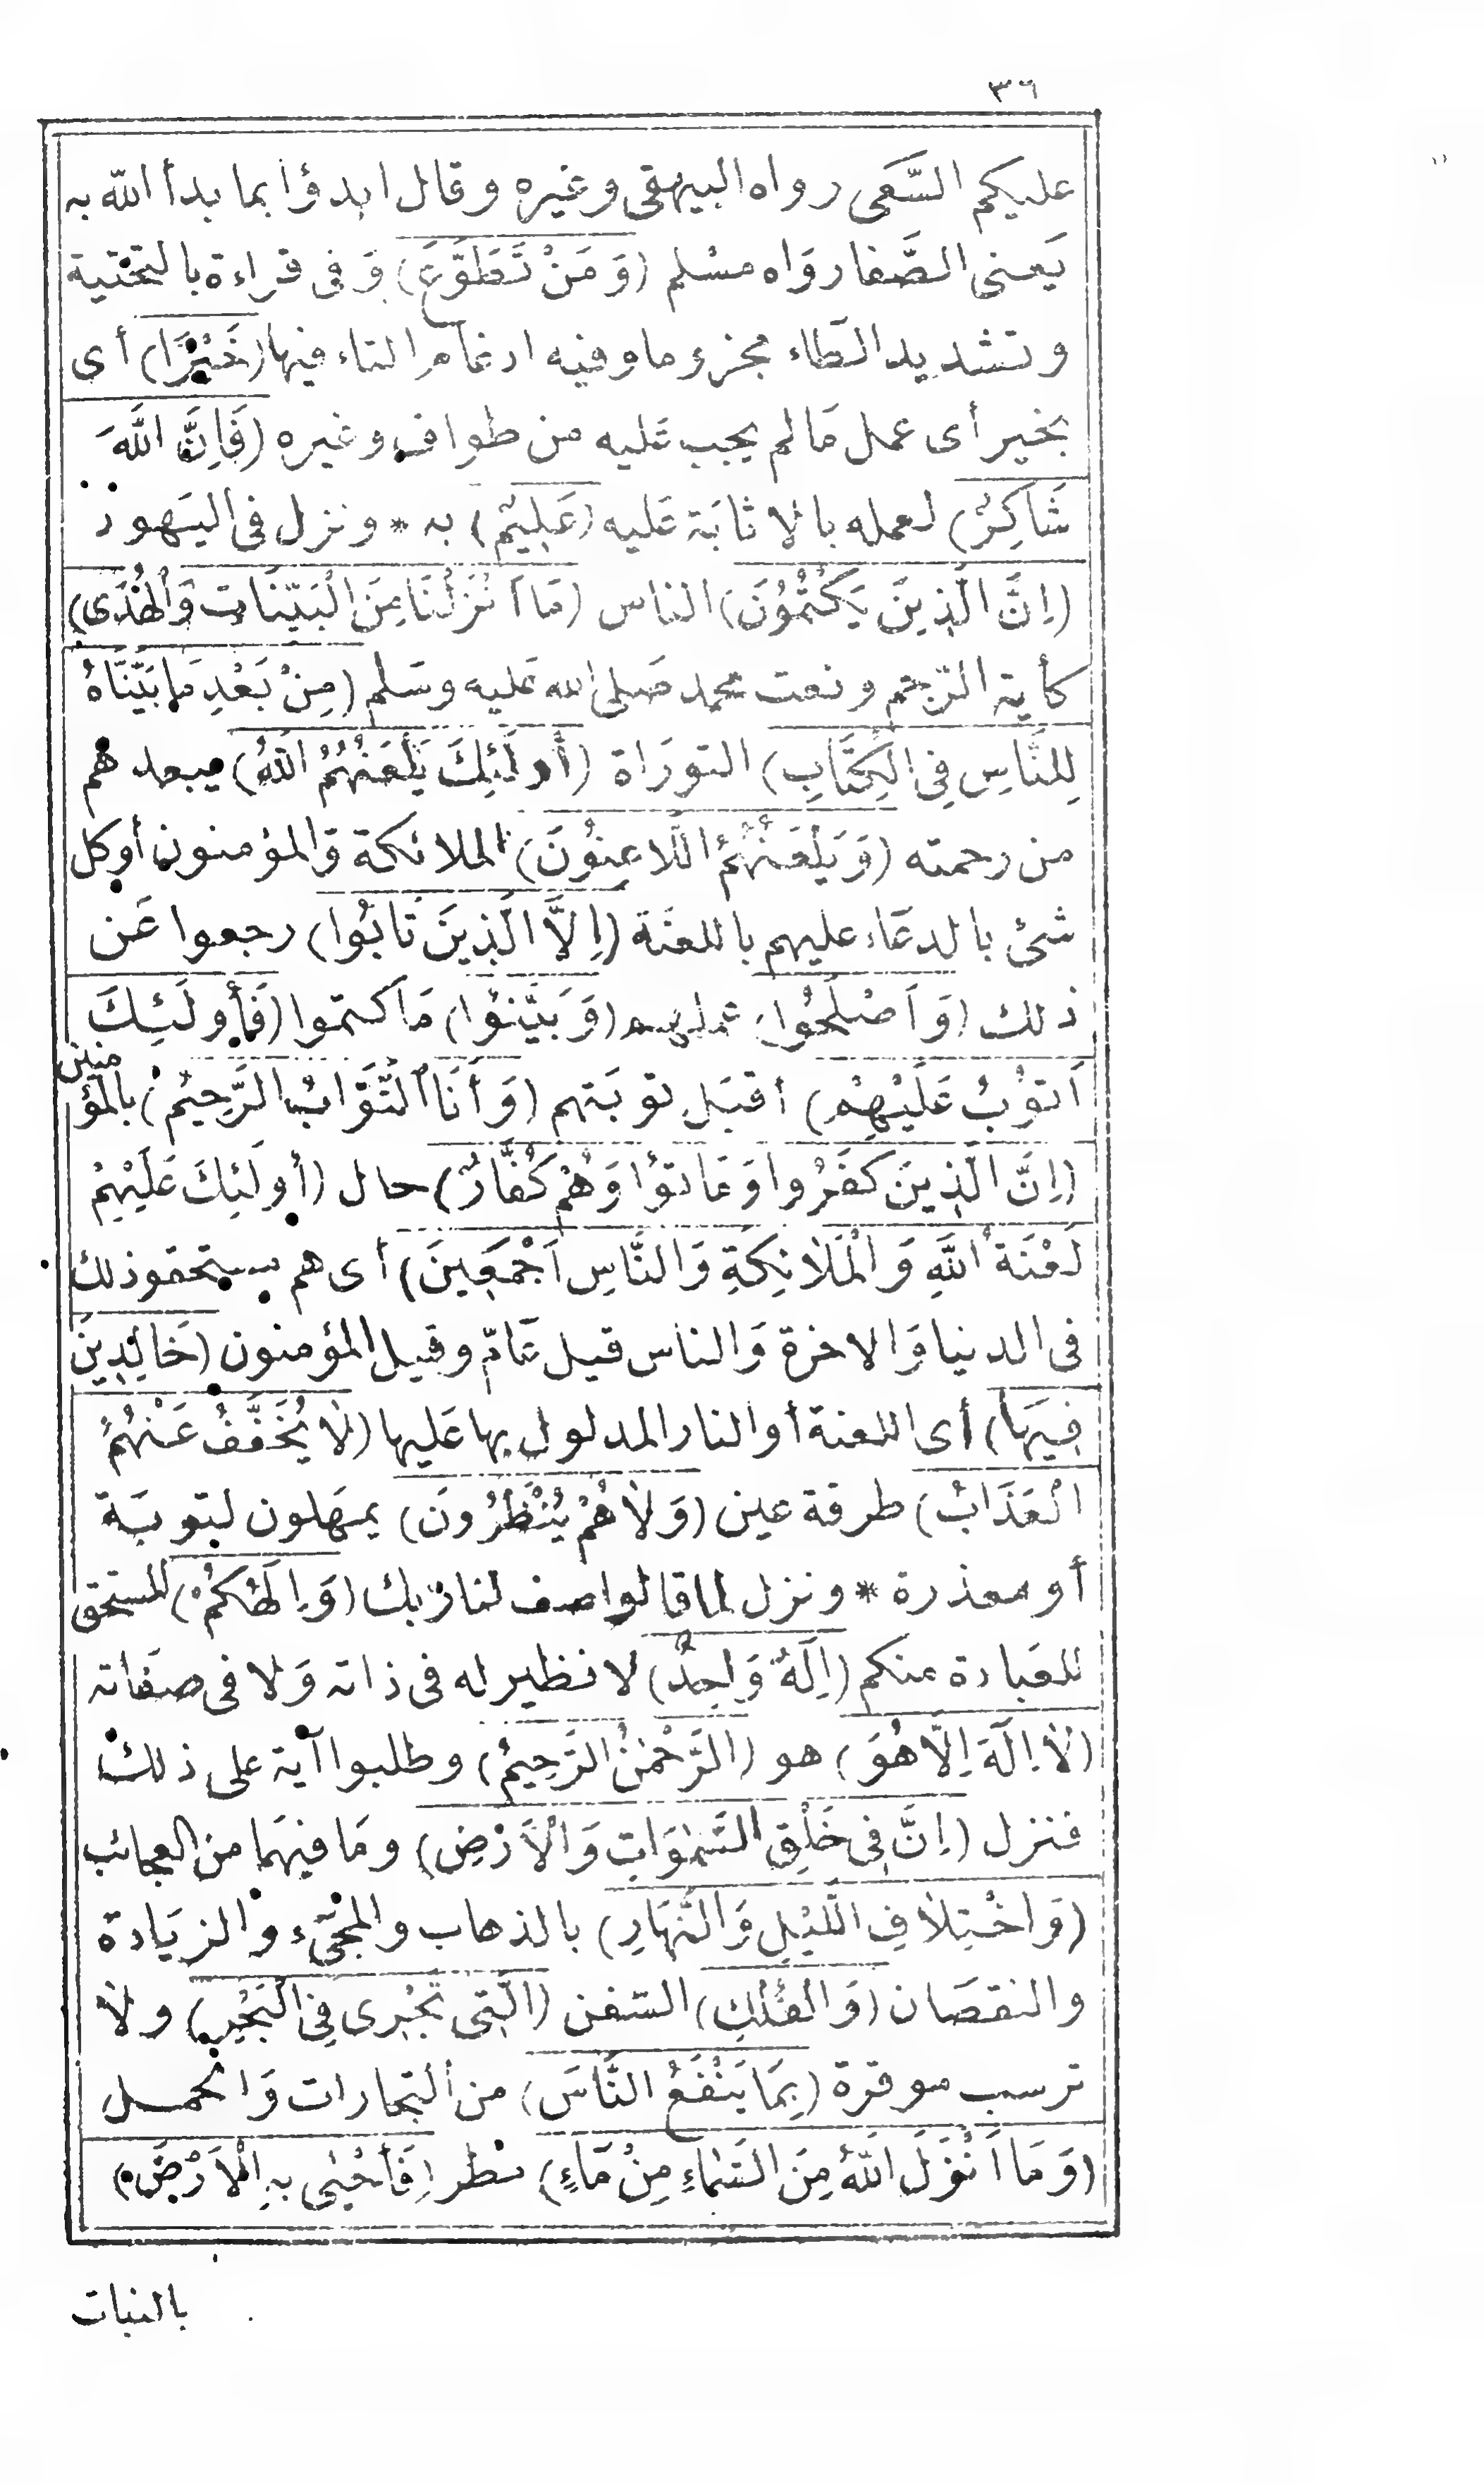 ٣٦
عليكم السَّعى رواه البيهقى وغيره وقال ابدؤا بما بدأ الله به
يَعنى الصَّفا روَاه مسْلم (وَمَنْ تَطَوَّعَ) وَفى قراءة بالتحتية
وتشديد الطاء مجزوما وفيه ادغام التاء فيها (خَيْرًا) أى
بخير أى عمل مَا لم يجب عَليه من طواف وغيره (فَاِنَّ اللَّهَ
شَاكِرٌ) لعمله بالاثابَة عَليه (عَلِيْمٌ) به * ونزل فى اليَهود
(اِنَّ الَّذِينَ يَكْتُمُوُنَ) الناس (مَا اَنْزَلْنَا مِنَ الْبَيِّنَاتِ وَالْهُدَى)
كأية الرّجم ونعت محمد صَلى الله عَليه وسَلم (مِنْ بَعْدِ مَا بَيَّنَّاهُ
لِلنَّاسِ فِى الْكِتَابِ) التورَاة (أُولَئِكَ يَلْعَنُهُمُ اللَّهُ) يبعدهم
من رحمته (وَيَلْعَنُهُمُ اللَّاعِنُوُنَ) الملائكة وَالمؤمنون أو كل
شئ بالدعَاء عليهم باللعنَة (اِلاَّ الَّذِينَ تَابُوا) رجعوا عَن
ذلك (وَاَصْلَحُوا) عملهم (وَبَيَّنُوا) مَا كتموا (فَأُولَئِكَ
اَتوُبُ عَلَيْهِمْ) أقبَل توبَتهم (وَأَنَا التَّوَّابُ الرَّحِيْمُ) بالمؤ
منين
(اِنَّ الَّذِينَ كَفَرُوا وَمَاتوُا وَهُمْ كُفَّارٌ) حال (أُولَئِكَ عَلَيْهِمْ
لَعْنَةُ اللَّهِ وَالْمَلَائِكَةِ وَالنَّاسِ اَجْمَعِينَ) أى هم مستحقو ذلك
فى الدنيا وَالاخرة وَالناس قيل عَامّ وقيل المؤمنون (خَالِدِينَ
فِيَهَا) أى اللعنة أو النار المدلول بها عَليها (لَا يُخَفَّفُ عَنْهُمُ
الْعَذَابُ) طرفة عين (وَلَا هُمْ يُنْظَرُونَ) يمهَلون لتوبَة
أو معذرة * ونزل لما قالوا صف لنا ربك (وَاِلَهُكُمْ) المستحق
للعبَادة منكم (اِلَهٌ وَاحِدٌ) لا نظير له فى ذاته وَلا فى صفَاته
(لَا اِلَهَ اِلَّا هُوَ) هو (الرَّحْمَنُ الرَّحِيمُ) وطلبوا آية على ذلك
فنزل (اِنَّ فِى خَلْقِ السَّمَوَاتِ وَالْأَرْضِ) ومَا فيهمَا من العجائب
(وَاخْتِلَافِ اللَّيْلِ وَالنَّهَارِ) بالذهاب والمجئ والزيَادة
والنقصَان (وَالْفُلْكِ) السّفن (الَّتِى تَجْرِى فِى الْبَحْرِ) ولا
ترسب موقرة (بِمَا يَنْفَعُ النَّاسَ) من التجارات وَالحمل
(وَمَا اَنْزَلَ اللَّهُ مِنَ السَّمَاءِ مِنْ مَاءٍ) مطر (فَأَحْيَى بِهِ الْاَرْضَ)
بالنبات